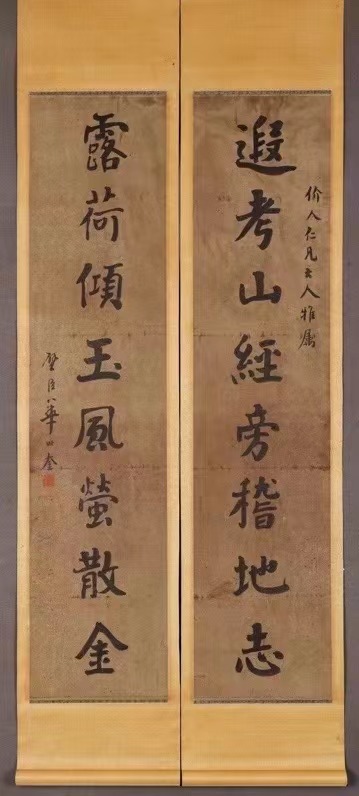 价人仁兄大人雅屬
遐考山經旁稽地志
露荷傾玉風螢散金
璧臣華世奎